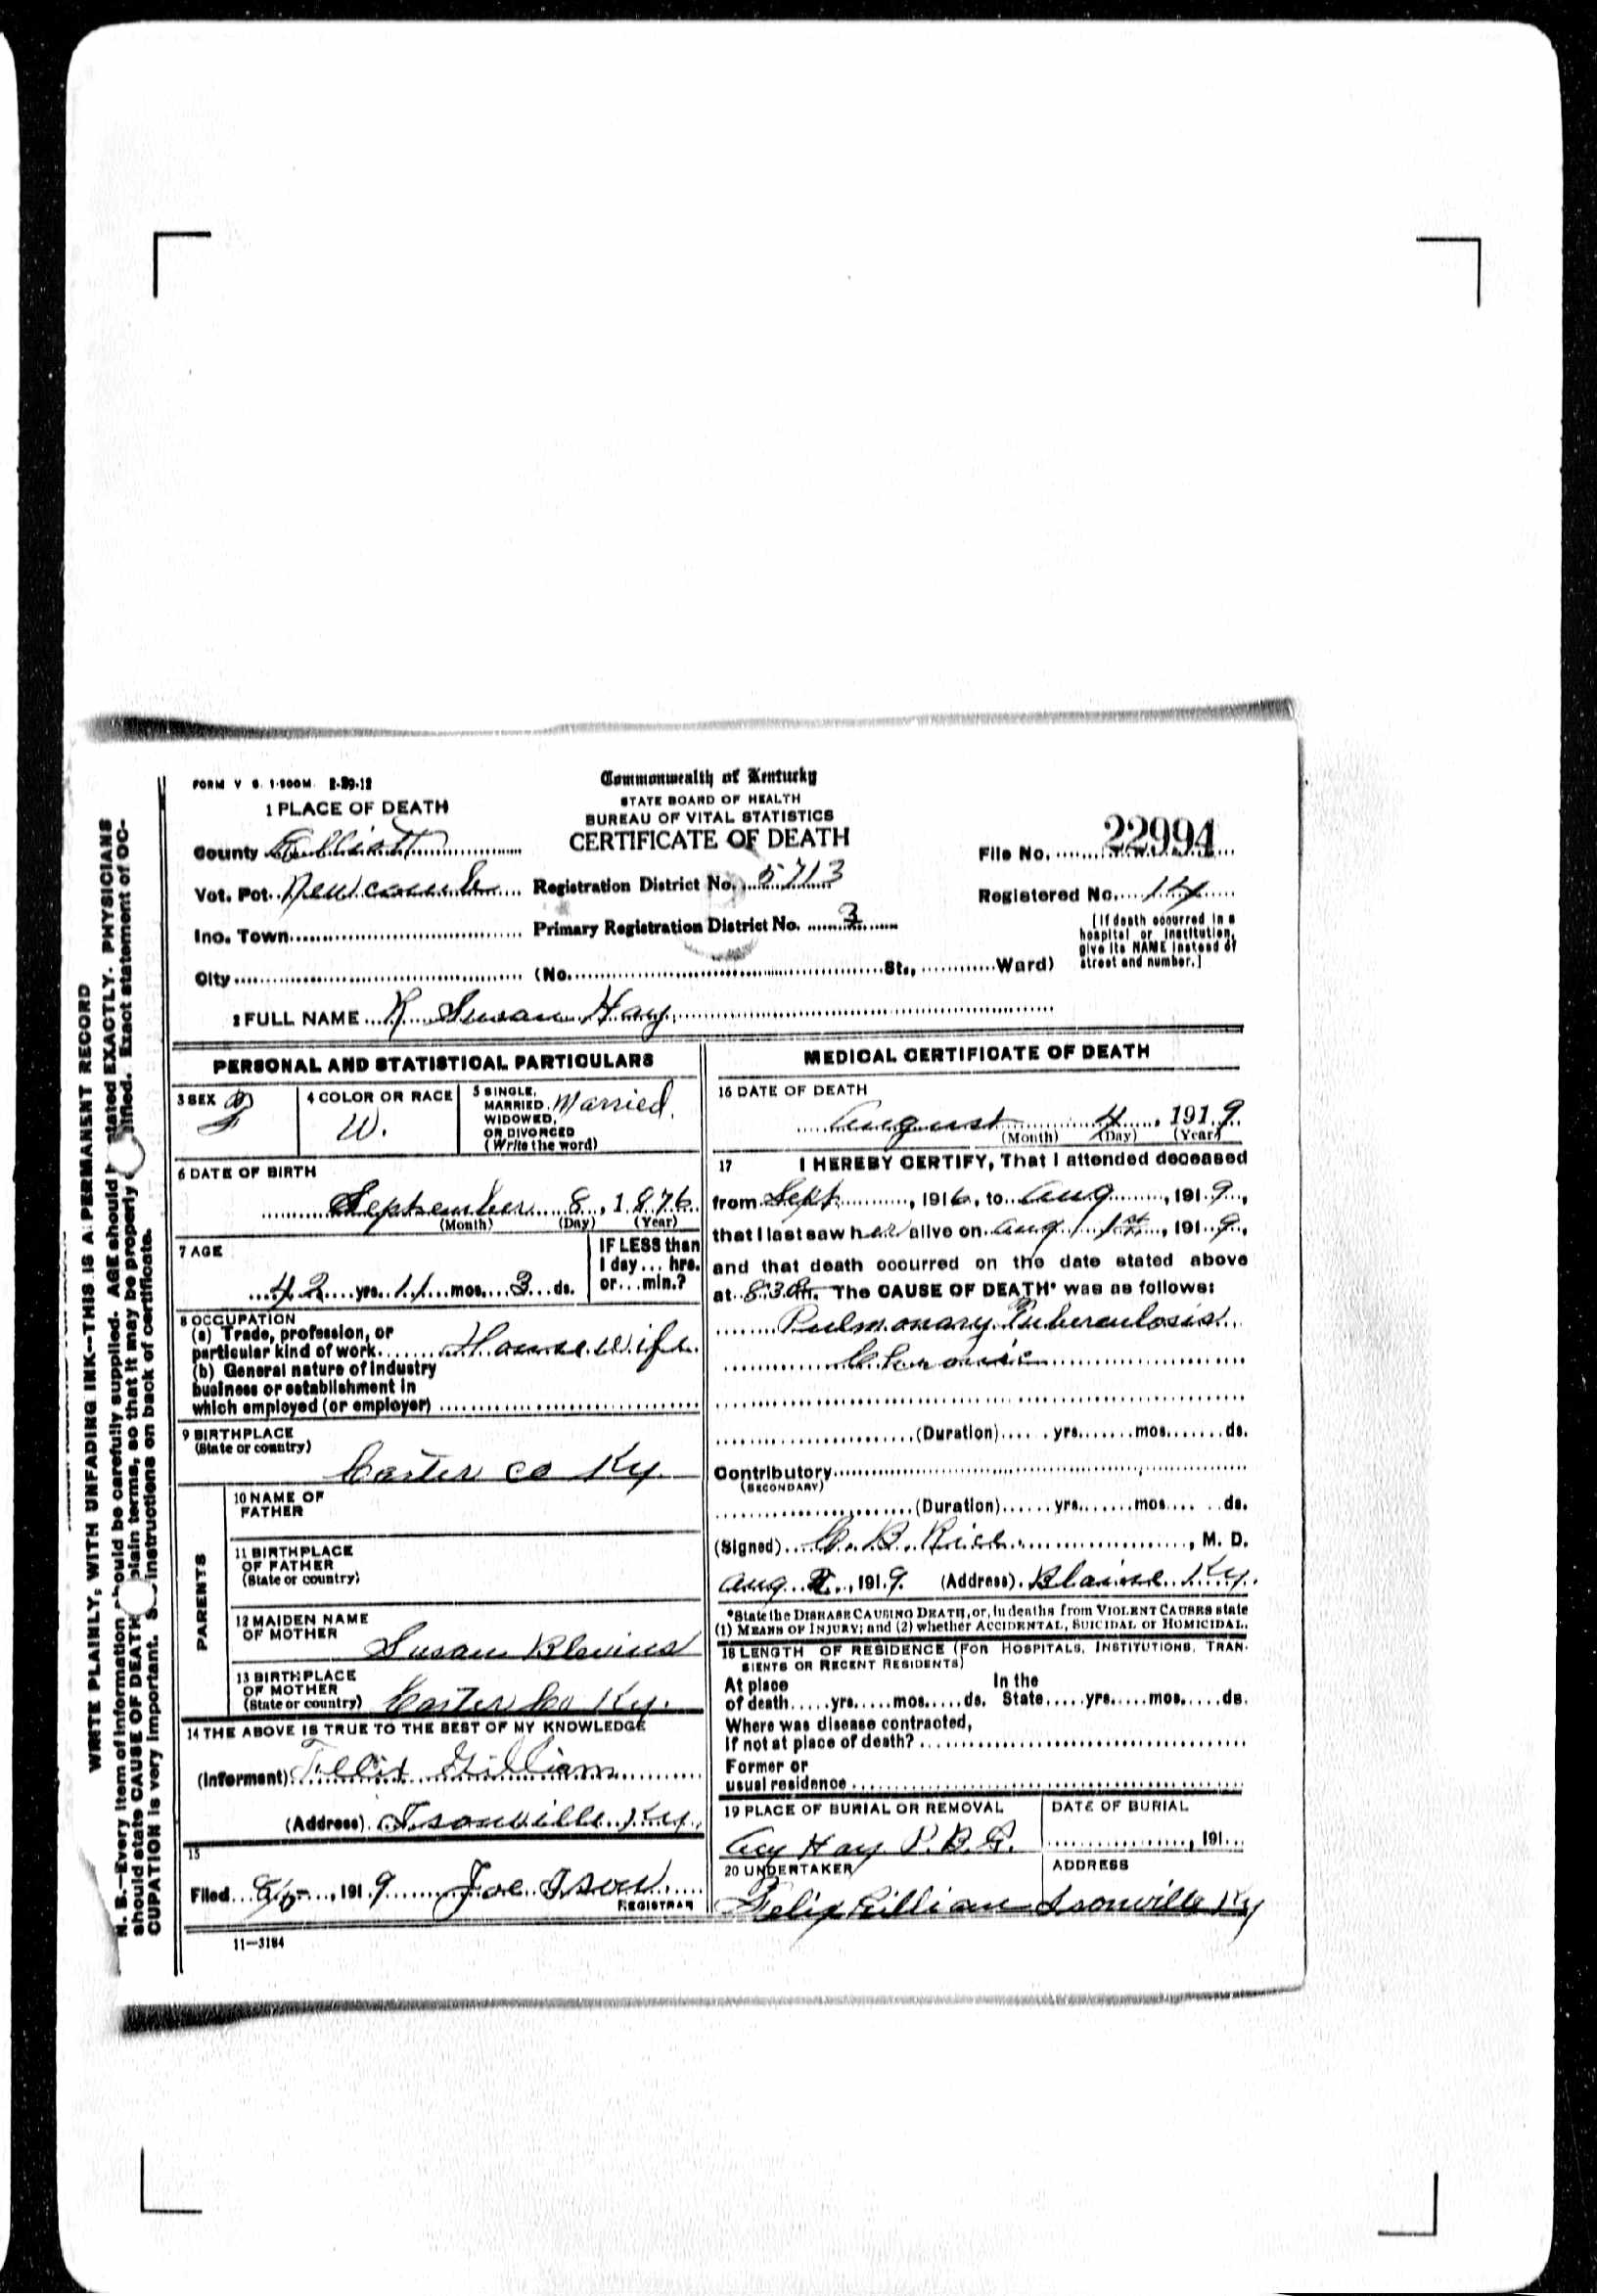 FORM V S. 1-500M. 2-29-12
Commonwealth of Kentucky
STATE BOARD OF HEALTH
BUREAU OF VITAL STATISTICS
CERTIFICATE OF DEATH
1 PLACE OF DEATH
County Elliott
Vot. Pct. Newcomb
Inc. Town
City (No. St., Ward)
Registration District No. 5713
Primary Registration District No. 3
File No. 22994
Registered No.
[If death occurred in a
hospital or institution,
give its NAME instead of
street and number.]
2 FULL NAME R Susan Hay
PERSONAL AND STATISTICAL PARTICULARS
3 SEX F
4 COLOR OR RACE
W.
5 SINGLE,
MARRIED,
WIDOWED,
OR DIVORCED
(Write the word)
Married
6 DATE OF BIRTH
September 8, 1876
(Month) (Day) (Year)
7 AGE
42 yrs. 11 mos. 3 ds.
IF LESS than
1 day... hrs.
or... min.?
8 OCCUPATION
(a) Trade, profession, or
particular kind of work Housewife
(b) General nature of industry
business or establishment in
which employed (or employer)
9 BIRTHPLACE
(State or country)
Carter co Ky.
PARENTS
10 NAME OF
FATHER
11 BIRTHPLACE
OF FATHER
(State or country)
12 MAIDEN NAME
OF MOTHER
Susan Blevins
13 BIRTHPLACE
OF MOTHER
(State or country) Carter Co Ky.
14 THE ABOVE IS TRUE TO THE BEST OF MY KNOWLEDGE
(Informant) Gilliam
(Address) Isonville Ky.
15
Filed 191 9 Joe Ison
REGISTRAR
11—3184
MEDICAL CERTIFICATE OF DEATH
16 DATE OF DEATH
August 4, 1919
(Month) (Day) (Year)
17 I HEREBY CERTIFY, That I attended deceased
from Sept, 1916, to Aug, 1919,
that I last saw her alive on Aug 1st, 1919,
and that death occurred on the date stated above
at 8:30 m. The CAUSE OF DEATH* was as follows:
Pulmonary Tuberculosis
Chronic
(Duration) yrs. mos. ds.
Contributory
(SECONDARY)
(Duration) yrs. mos. ds.
(Signed) B. Rice, M. D.
Aug, 1919. (Address) Blaine Ky.
*State the DISEASE CAUSING DEATH, or, in deaths from VIOLENT CAUSES state
(1) MEANS OF INJURY; and (2) whether ACCIDENTAL, SUICIDAL or HOMICIDAL.
18 LENGTH OF RESIDENCE (FOR HOSPITALS, INSTITUTIONS, TRAN-
SIENTS OR RECENT RESIDENTS)
At place
of death yrs. mos. ds.
In the
State yrs. mos. ds.
Where was disease contracted,
If not at place of death?
Former or
usual residence
19 PLACE OF BURIAL OR REMOVAL
Hay P.B.G.
DATE OF BURIAL
, 191
20 UNDERTAKER
Felix Gilliam
ADDRESS
Isonville Ky
WRITE PLAINLY, WITH UNFADING INK—THIS IS A PERMANENT RECORD
N. B.—Every item of information should be carefully supplied. AGE should stated EXACTLY. PHYSICIANS
should state CAUSE OF DEATH plain terms, so that it may be properly Exact statement of OC-
CUPATION is very important. instructions on back of certificate.